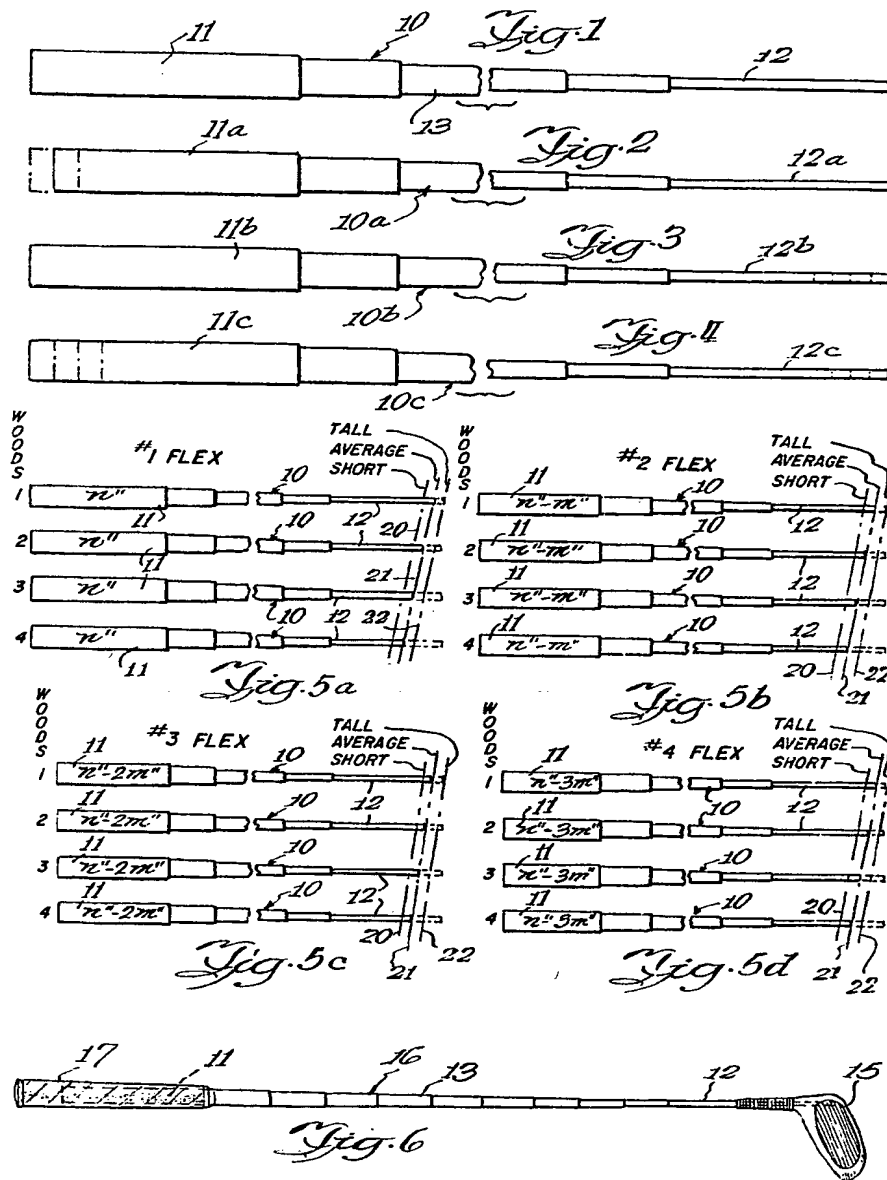 11
10
Fig. 1
12
13
11a
Fig. 2
12a
10a
11b
Fig. 3
12b
10b
11c
Fig. 4
12c
10c
WOODS
#1 FLEX
TALL
AVERAGE
SHORT
1
n"
11
10
12
20
2
n"
11
10
21
3
n"
11
10
12
22
4
n"
11
10
12
Fig. 5a
WOODS
#2 FLEX
TALL
AVERAGE
SHORT
1
11
n"-m"
10
12
2
11
n"-m"
10
12
3
11
n"-m"
10
12
4
11
n"-m"
10
12
20
21
22
Fig. 5b
WOODS
#3 FLEX
TALL
AVERAGE
SHORT
1
11
n"-2m"
10
12
2
11
n"-2m"
10
12
3
11
n"-2m"
10
12
4
11
n"-2m"
10
20
21
22
Fig. 5c
WOODS
#4 FLEX
TALL
AVERAGE
SHORT
1
11
n"-3m"
10
12
2
11
n"-3m"
10
3
11
n"-3m"
10
4
11
n"-3m"
10
20
21
22
Fig. 5d
17
11
16
13
12
15
Fig. 6